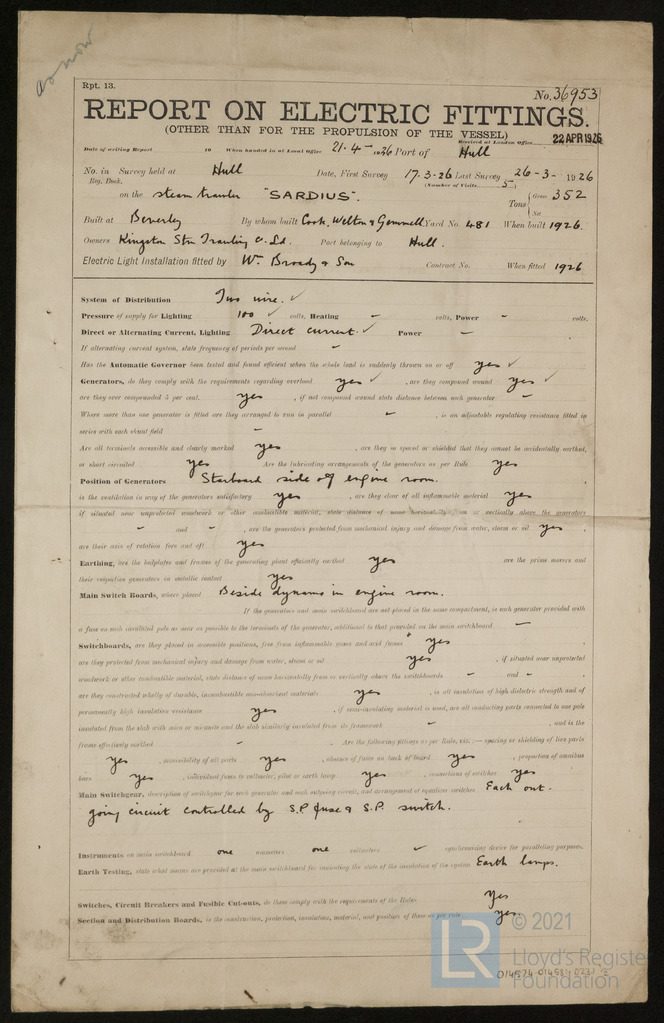 as now
Rpt. 13.
No. 36953
REPORT ON ELECTRIC FITTINGS.
(OTHER THAN FOR THE PROPULSION OF THE VESSEL)
Received at London Office 22 APR 1926
Date of writing Report 19 When handed in at Local Office 21-4-1926 Port of Hull
No. in Survey held at Hull Date, First Survey 17.3-26 Last Survey 26-3-1926
Reg. Book. (Number of Visits 5)
on the steam trawler "SARDIUS". Tons { Gross 352
Net
Built at Beverley By whom built Cook, Welton & Gemmell Yard No. 481 When built 1926.
Owners Kingston Stm Trawling Co. Ld. Port belonging to Hull.
Electric Light Installation fitted by Wm. Broady & Son Contract No. When fitted 1926
System of Distribution Two wire. ✓
Pressure of supply for Lighting 100 ✓ volts, Heating - volts, Power - volts.
Direct or Alternating Current, Lighting Direct current. ✓ Power -
If alternating current system, state frequency of periods per second -
Has the Automatic Governor been tested and found efficient when the whole load is suddenly thrown on or off yes ✓
Generators, do they comply with the requirements regarding overload yes ✓, are they compound wound yes ✓
are they over compounded 5 per cent. yes, if not compound wound state distance between each generator -
Where more than one generator is fitted are they arranged to run in parallel -, is an adjustable regulating resistance fitted in
series with each shunt field -
Are all terminals accessible and clearly marked yes, are they so spaced or shielded that they cannot be accidentally earthed,
or short circuited yes Are the lubricating arrangements of the generators as per Rule yes
Position of Generators Starboard side of engine room.
is the ventilation in way of the generators satisfactory yes, are they clear of all inflammable material yes
if situated near unprotected woodwork or other combustible material, state distance of same horizontally from or vertically above the generators
- and -, are the generators protected from mechanical injury and damage from water, steam or oil yes,
are their axis of rotation fore and aft yes
Earthing, are the bedplates and frames of the generating plant efficiently earthed yes are the prime movers and
their respective generators in metallic contact yes
Main Switch Boards, where placed Beside dynamo in engine room.
If the generators and main switchboard are not placed in the same compartment, is each generator provided with
a fuse on each insulated pole as near as possible to the terminals of the generator, additional to that provided on the main switchboard -
Switchboards, are they placed in accessible positions, free from inflammable gases and acid fumes yes
are they protected from mechanical injury and damage from water, steam or oil yes, if situated near unprotected
woodwork or other combustible material, state distance of same horizontally from or vertically above the switchboards - and -,
are they constructed wholly of durable, incombustible non-absorbent materials yes, is all insulation of high dielectric strength and of
permanently high insulation resistance yes, if semi-insulating material is used, are all conducting parts connected to one pole
insulated from the slab with mica or micanite and the slab similarly insulated from its framework -, and is the
frame effectively earthed - Are the following fittings as per Rule, viz.:— spacing or shielding of live parts
yes, accessibility of all parts yes, absence of fuses on back of board yes, proportion of omnibus
bars yes, individual fuses to voltmeter, pilot or earth lamp yes, connections of switches yes
Main Switchgear, description of switchgear for each generator and each outgoing circuit, and arrangement of equaliser switches Each out.
going circuit controlled by S.P. fuse & S.P. switch.
Instruments on main switchboard one ammeters one voltmeters ✓ synchronising device for paralleling purposes.
Earth Testing, state what means are provided at the main switchboard for indicating the state of the insulation of the system Earth lamps.
Switches, Circuit Breakers and Fusible Cut-outs, do these comply with the requirements of the Rules Yes
Section and Distribution Boards, is the construction, protection, insulation, material, and position of these as per rule yes
LR © 2021
Lloyd's Register
Foundation